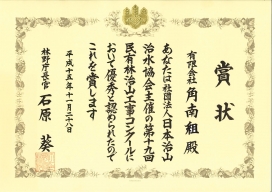 賞状
有限会社 角南組 殿
あなたは社団法人日本治山
治水協会主催の第十九回
民有林治山工事コンクールに
おいて優秀と認められたので
これを賞します
平成十五年十一月二十八日
林野庁長官 石原 葵